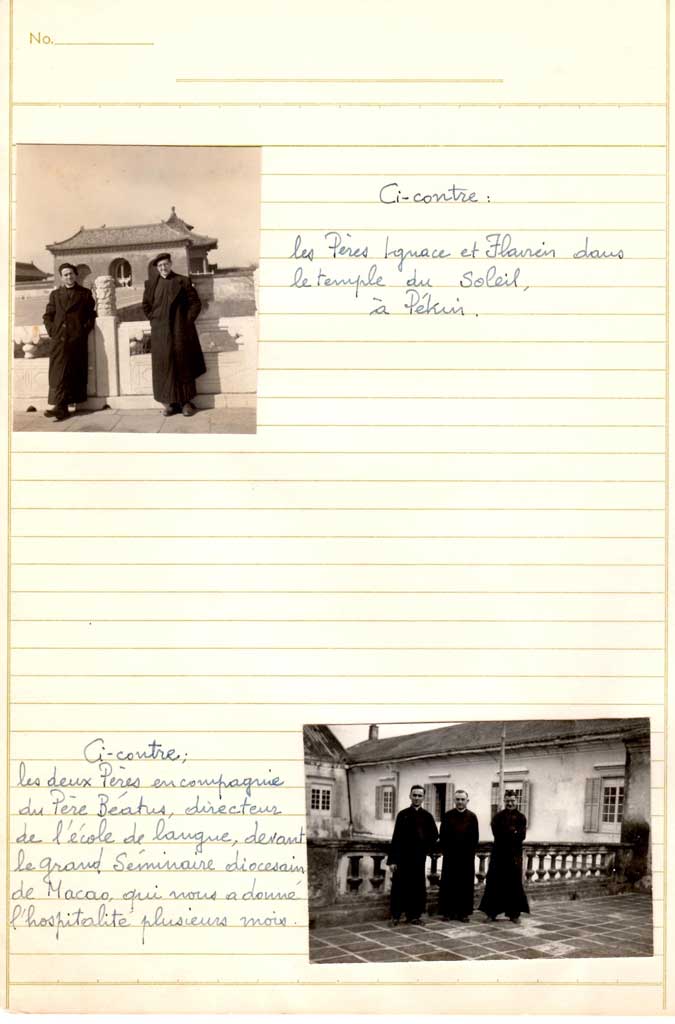 No.
Ci-contre :
les Pères Ignace et Flavien dans
le temple du Soleil,
à Pékin.
Ci-contre ;
les deux Pères en compagnie
du Père Béatus, directeur
de l'école de langue, devant
le grand Séminaire diocesain
de Macao, qui nous a donné
l'hospitalité plusieurs mois.